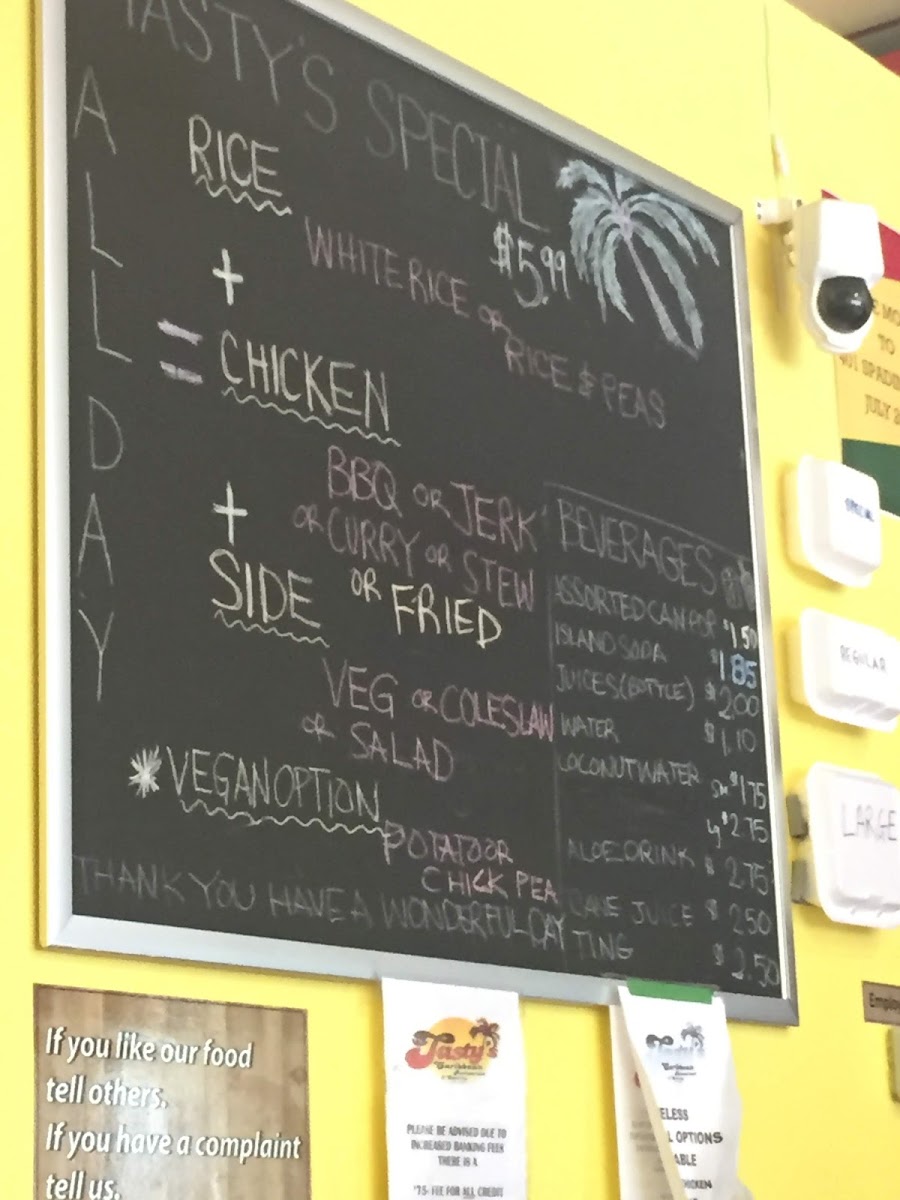 TASTY'S SPECIAL
$5.99
ALL DAY
RICE
WHITE RICE OR
RICE & PEAS
+
= CHICKEN
BBQ OR JERK
OR CURRY OR STEW
OR FRIED
+
SIDE
VEG OR COLESLAW
OR SALAD
*VEGAN OPTION
POTATO OR
CHICK PEA
THANK YOU HAVE A WONDERFUL DAY
BEVERAGES
ASSORTED CAN POP $1.50
ISLAND SODA $1.85
JUICES (BOTTLE) $2.00
WATER $1.10
COCONUT WATER SM $1.75
LG $2.75
ALOE DRINK $2.75
CANE JUICE $2.50
TING $2.50
TO
JULY
SPECIAL
REGULAR
LARGE
If you like our food
tell others.
If you have a complaint
tell us.
Tasty's
Caribbean
PLEASE BE ADVISED DUE TO
INCREASED BANKING FEES
THERE IS A
.75¢ FEE FOR ALL CREDIT
Tasty's
Caribbean
ELESS
L OPTIONS
ABLE
HICKEN
Employ